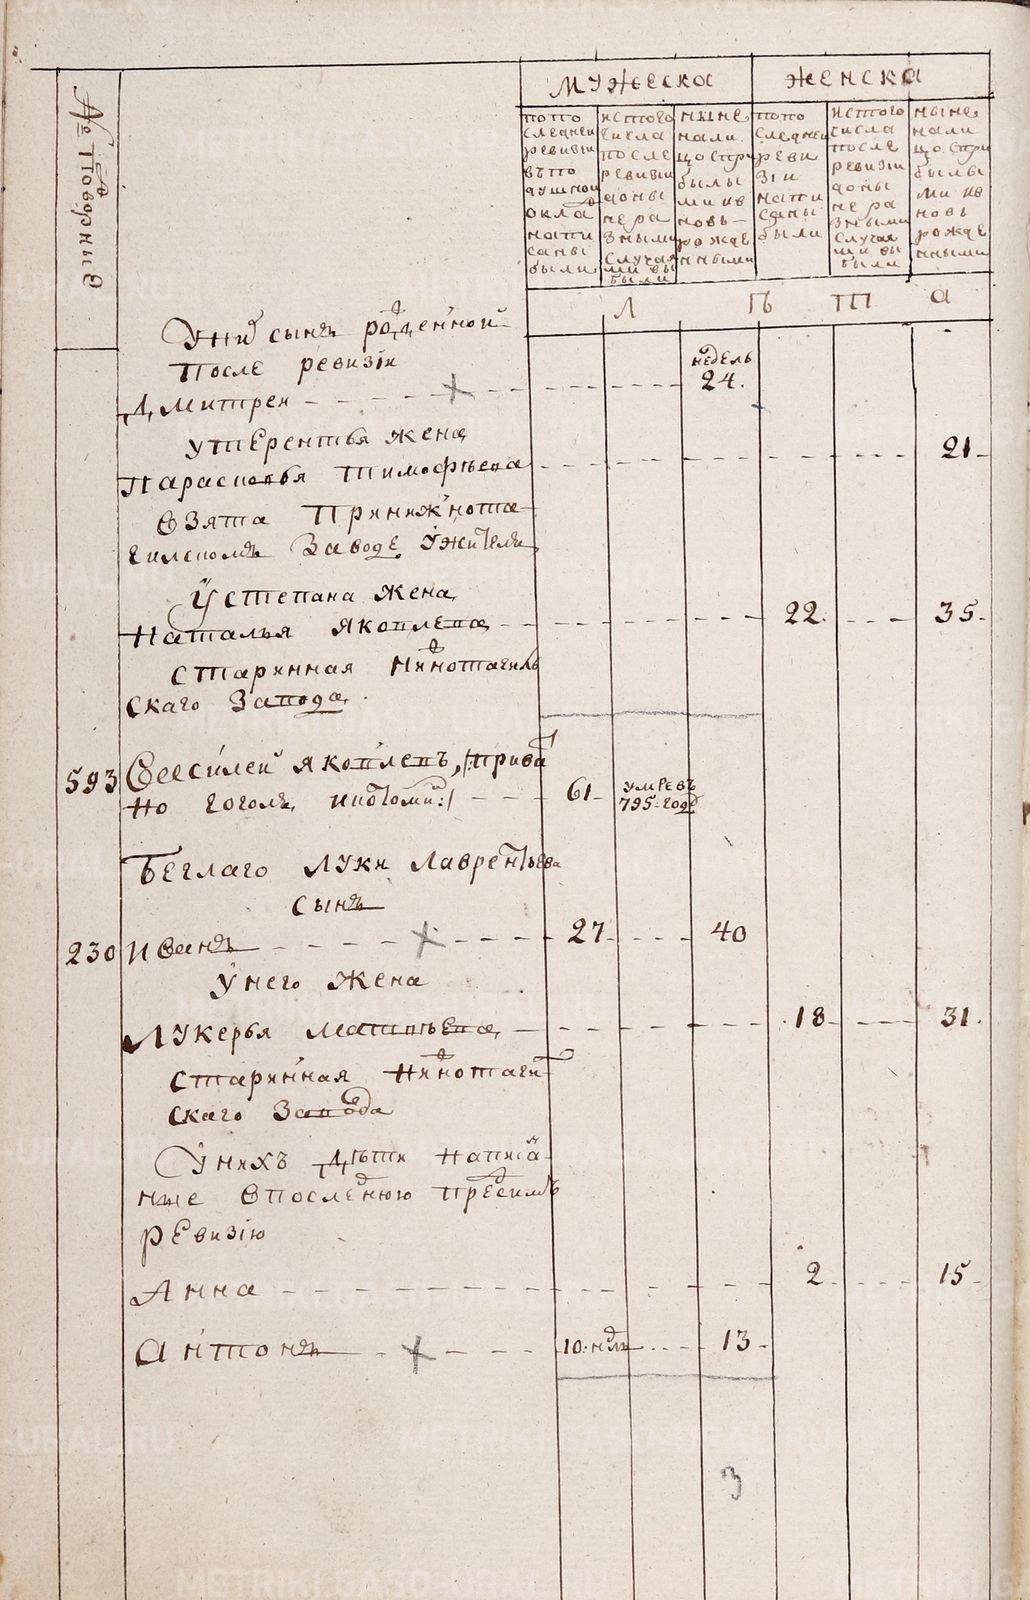 МУЖЕСКА ЖЕНСКА
№ Подворные
по по следней ревизии въ по душной оклад написаны были
ис того числа после ревизии доны не разными случаями выбыли
ныне на лицо с прибылыми и вновь рожденными
по по следней ревизии написаны были
ис того числа после ревизии доны не разными случаями выбыли
ныне на лицо с прибылыми и вновь рожденными
Л Ѣ Т А
У них сынъ рожденной
после ревизiи
недель
Дмитрей 24.
У Терентья жена 21
Парасковья Тимофѣева
взята при нижнота
гилском Заводе у жителя
У Степана жена
Наталья Яковлева 22 35
старинная нижнотагиль
скаго Завода
593 Василей Яковлевъ,
но Гоголь 61 умре въ 795 годѣ
Беглаго Луки Лаврентьева
сынъ
230 Иванъ 27 40
У него жена
Лукерья Матвѣева 18 31
старинная нижнотаги
скаго Завода
У нихъ дѣти написа
ные в последнюю пред симъ
ревизiю
Анна 2 15
Антонъ 10 нд 13
3
METRIKI.GASO-URAL.RU